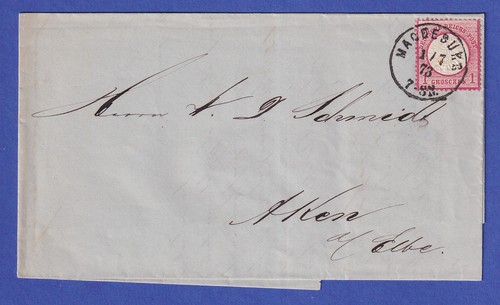 MAGDEBURG
1 17
73
7-8N.
1 GROSCHEN 1
Herrn W. D Schmidt
Aken
a/ Elbe.